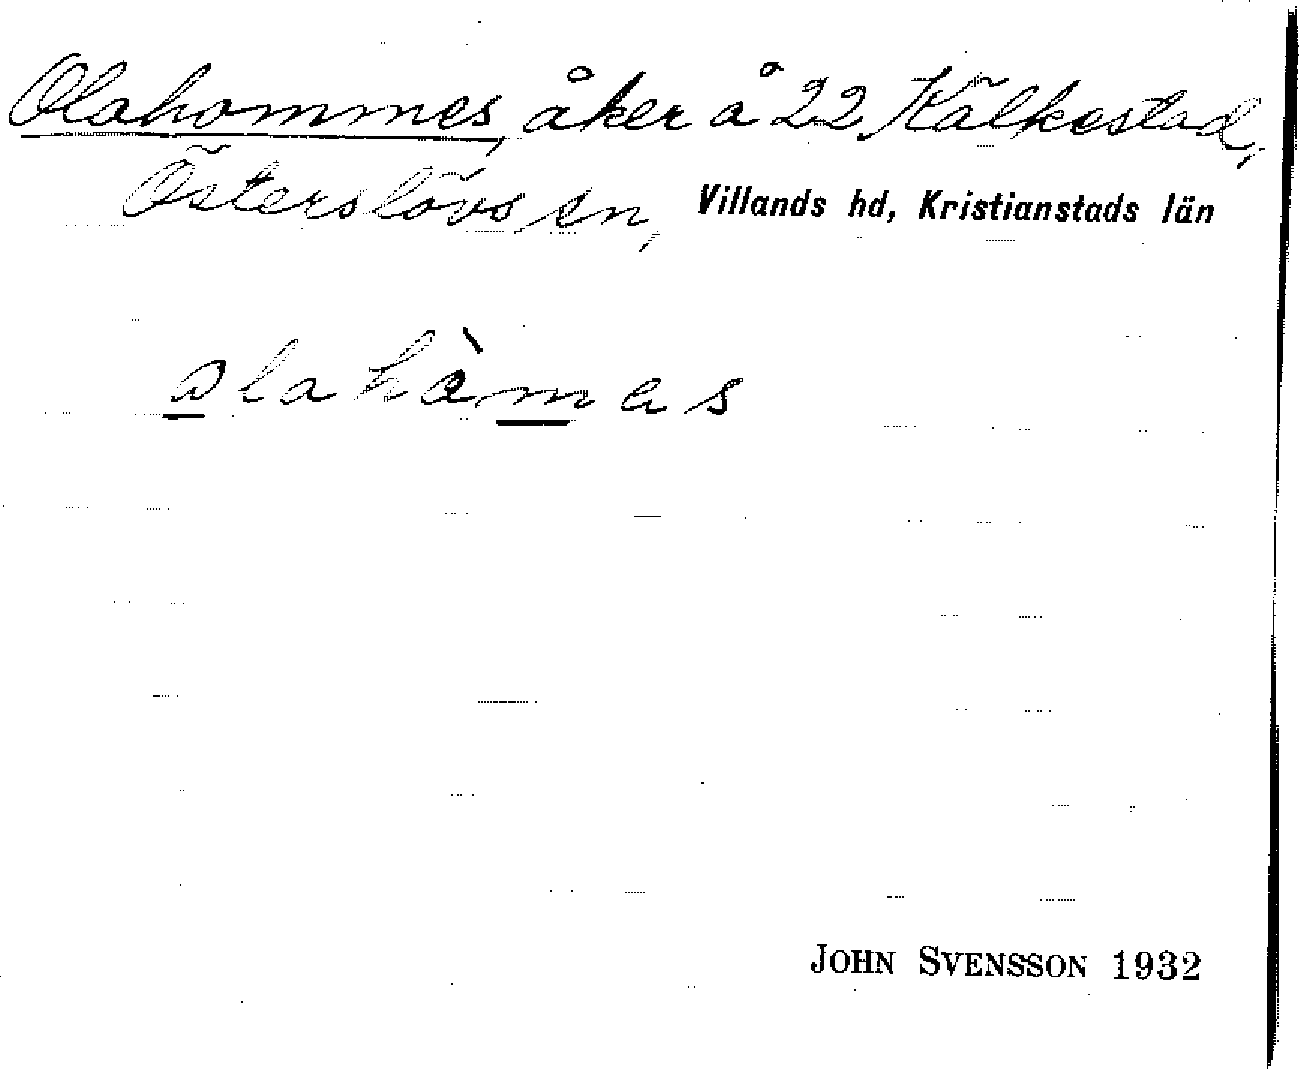 Olahommes, åker å 22 Kälkestad,
Österslövs sn, Villands hd, Kristianstads län
olahòmas
JOHN SVENSSON 1932